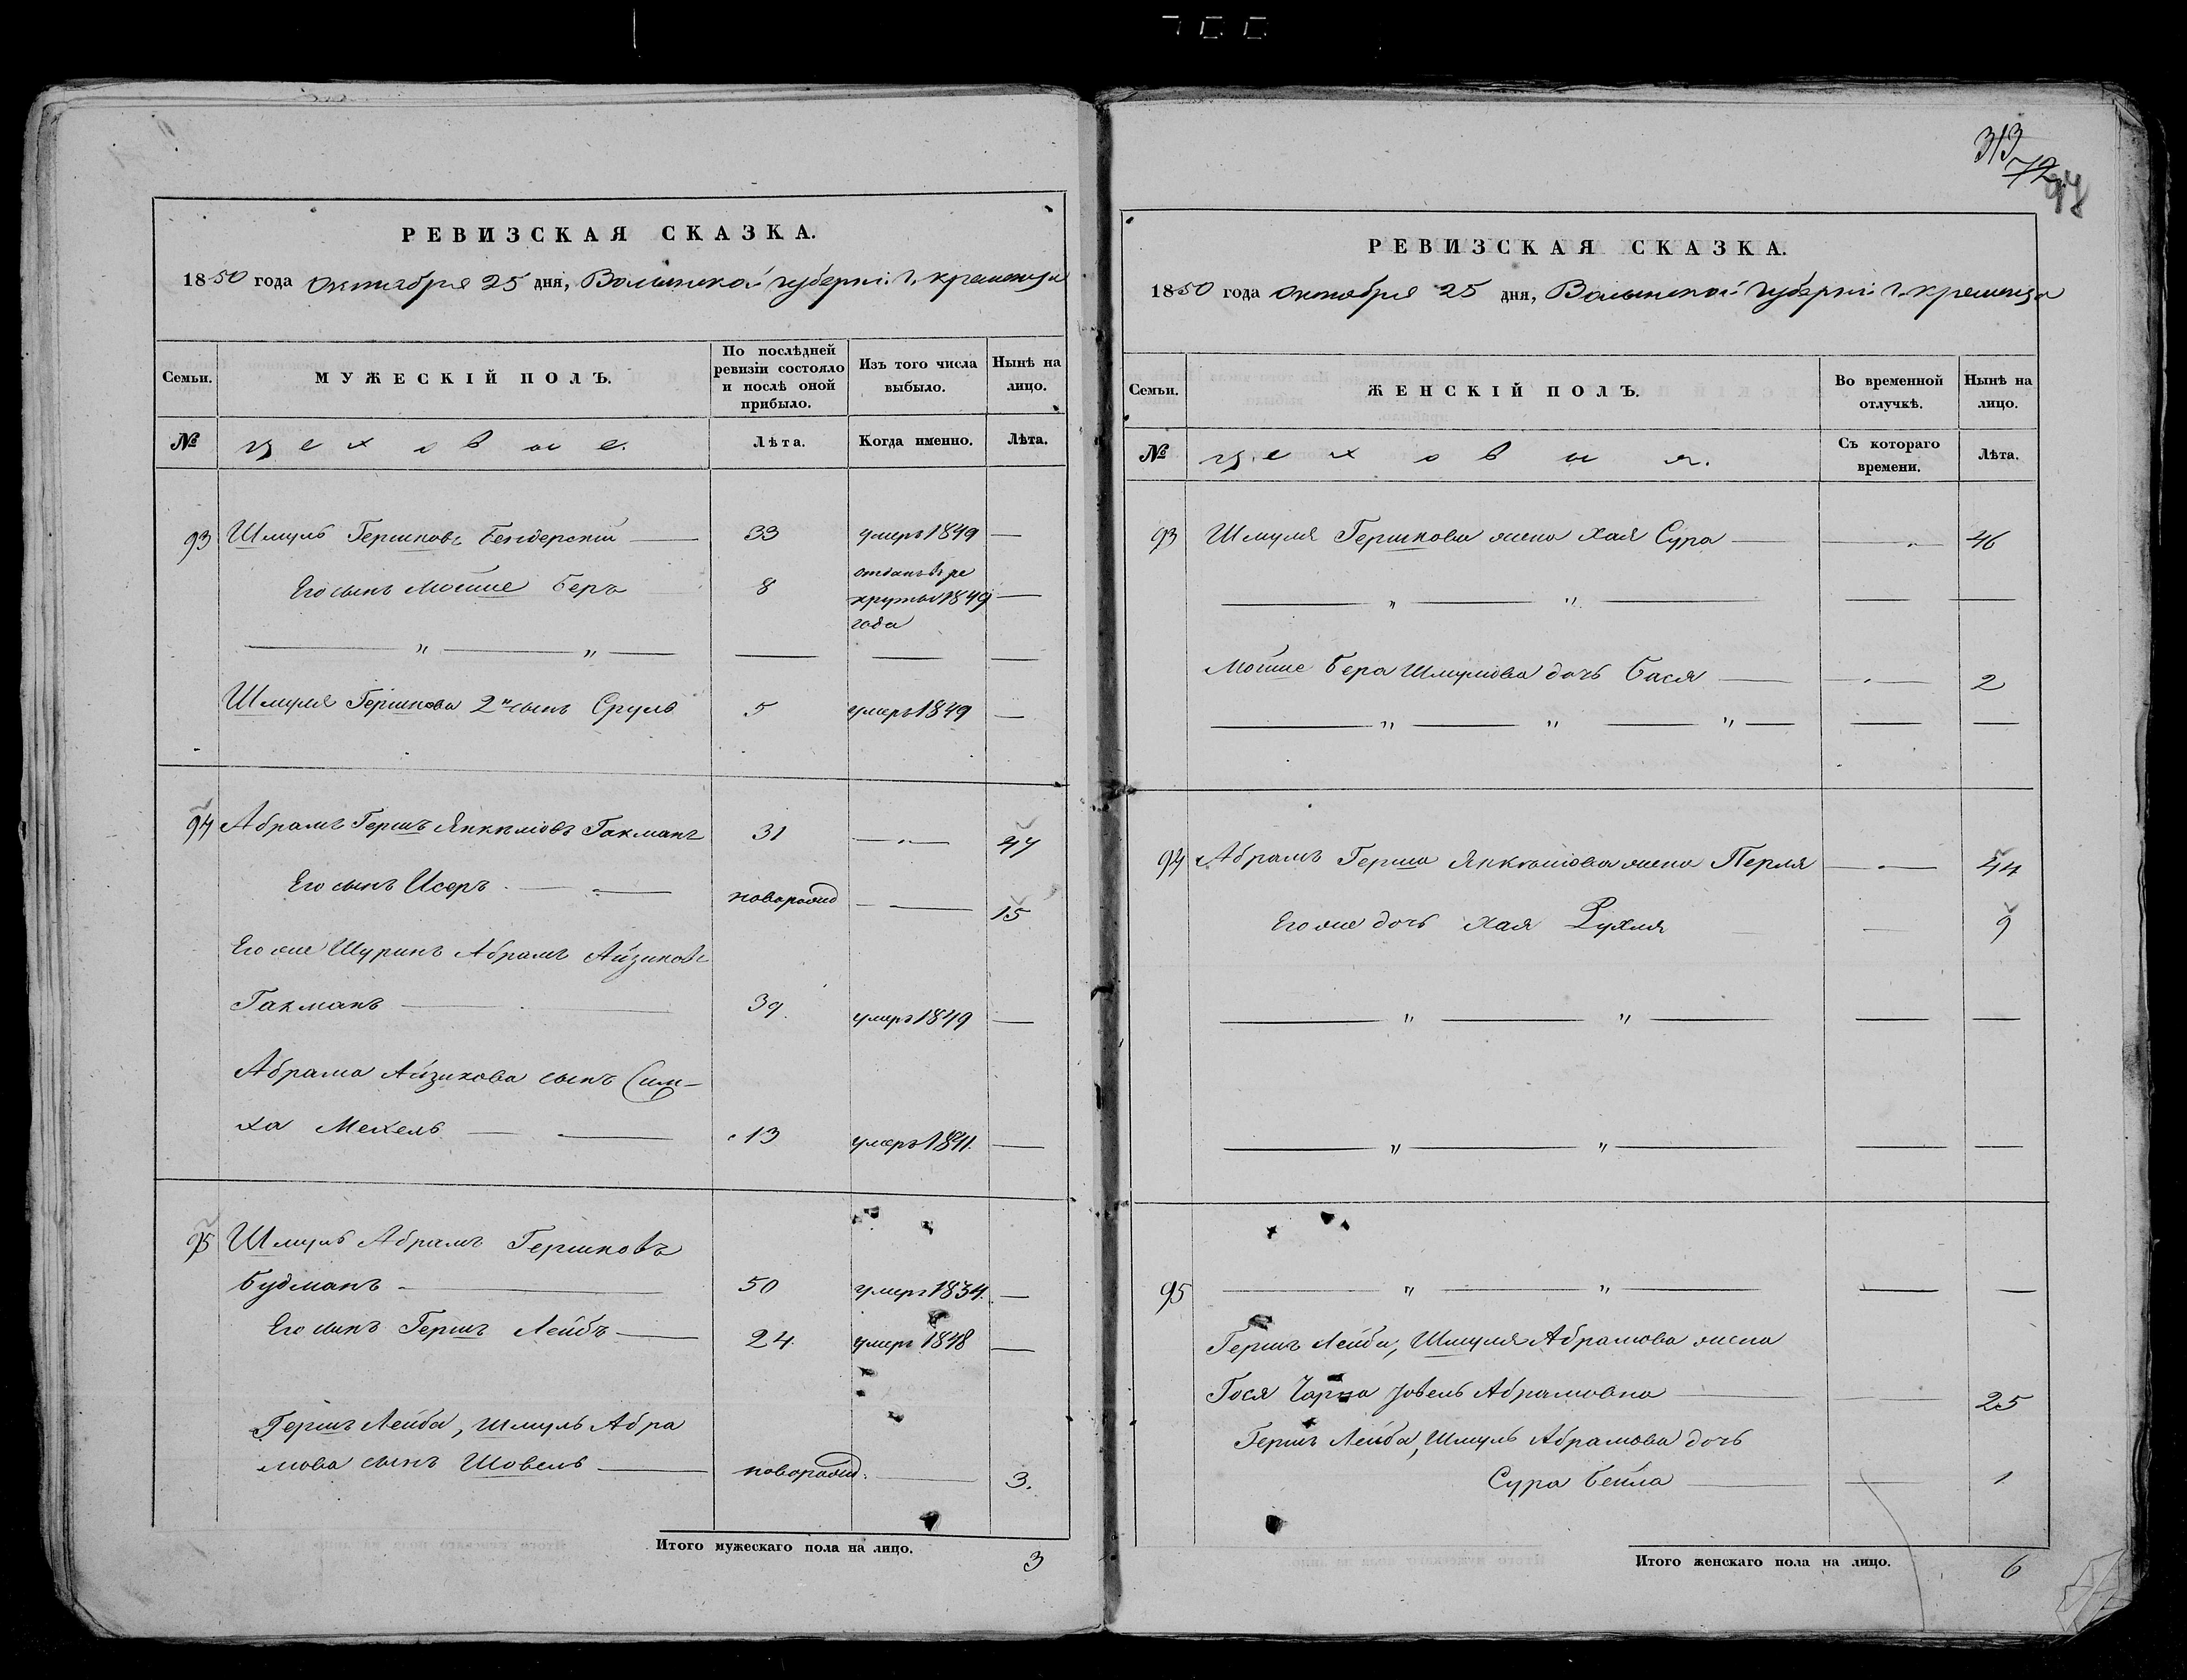 РЕВИЗСКАЯ СКАЗКА.
1850 года октября 25 дня, Волынской губерніи г. кременца
Семьи.
МУЖЕСКІЙ ПОЛЪ.
По послѣдней ревизіи состояло и послѣ оной прибыло.
Изъ того числа выбыло.
Нынѣ на лицо.
№
цеховые.
Лѣта.
Когда именно.
Лѣта.
93 Шмуль Гершковъ Бендерскій 33 умеръ 1849
Его сынъ Мошие Беръ 8 отданъ въ ре
круты 1849
года
Шмуля Гершкова 2й сынъ Сруль 5 умеръ 1849
94 Абрамъ Гершъ Янкелюовъ Гакманъ 31 47
Его сынъ Исеръ новорожд 15
Его же Шуринъ Абрамъ Айзиковъ
Гакманъ 39 умеръ 1849
Абрама Айзикова сынъ Сим-
ха Мехель 13 умеръ 1841.
95 Шмуль Абрамъ Гершковъ
Будманъ 50 умеръ 1834.
Его сынъ Гершъ Лейбъ 24. умеръ 1848
Гершъ Лейба, Шмуль Абра
мова сынъ Шовель новорожд. 3.
Итого мужескаго пола на лицо. 3
313
72
98
РЕВИЗСКАЯ СКАЗКА.
1850 года октября 25 дня, Волынской губерніи г. кременца
Семьи.
ЖЕНСКІЙ ПОЛЪ.
Во временной отлучкѣ.
Нынѣ на лицо.
№
цеховыя.
Съ котораго времени.
Лѣта.
93 Шмуля Гершкова жена Хая Сура 46
Мошие Бера Шмулова дочь Бася 2
94 Абрамъ Герша Янкелюва жена Перля 44
Его же дочь Хая Рухля 9
95
Гершъ Лейби, Шмуля Абрамова жена
Гося Чарна Іовель Абрамовна 25
Гершъ Лейба, Шмуль Абрамова дочь
Сура Бейла 1
Итого женскаго пола на лицо. 6